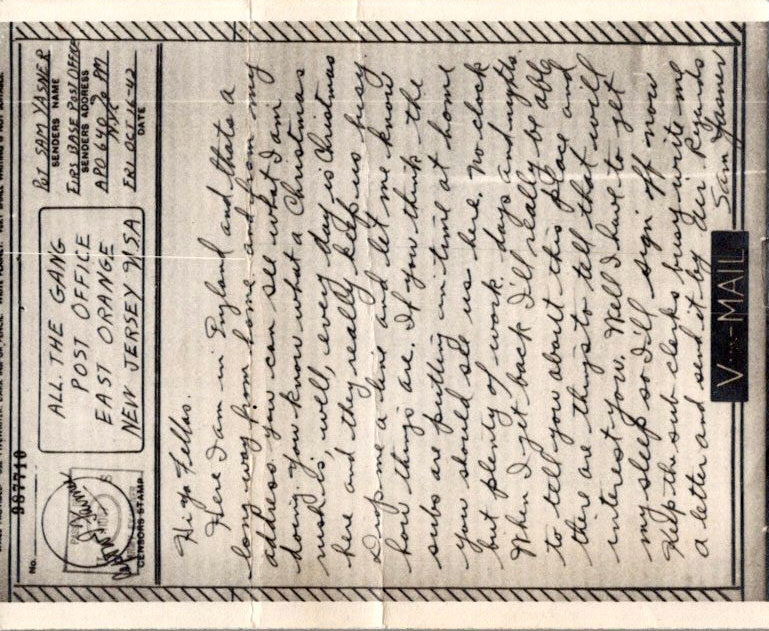 No.
987710
CENSORS STAMP
ALL THE GANG
POST OFFICE
EAST ORANGE
NEW JERSEY USA
PVT SAM YASNER
SENDERS NAME
FIRS BASE POST OFFICE
SENDERS ADDRESS
APO 640 % PM
NYC
FRI OCT 16-42
DATE
Hi Ya Fellas.
Here I am in England and thats a
long way from home. and from my
address you can see what I am
doing. You know what a Christmas
rush is, well, every day is Christmas
here and they really keep us busy.
Drop me a line and let me know
how things are. If you think the
subs are putting in time at home
you should see us here. No clock
but plenty of work. days and nights.
When I get back I'll really be able
to tell you about this place and
there are things to tell that will
interest you. Well I have to get
my sleep so I'll sign off now
Keep the sub clerks busy write me
a letter and send it by Air Regards
Sam Yasner
V···-MAIL